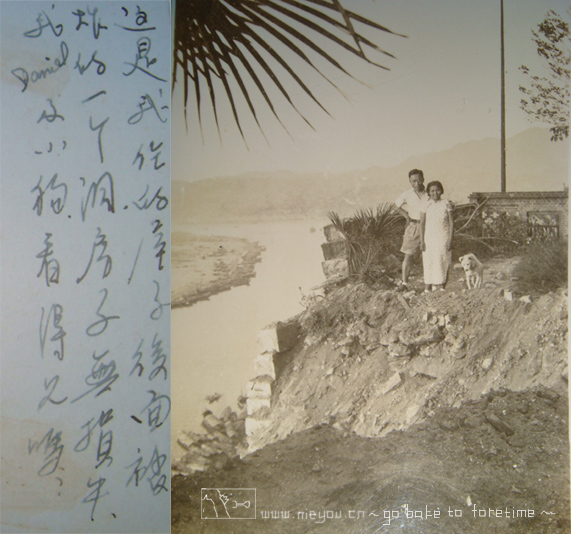 这是我住的房子後面被
炸的一个洞.房子無損失.
我Daniel及小狗.看得见嗎?
www.meyou.cn ~ go bake to foretime ~